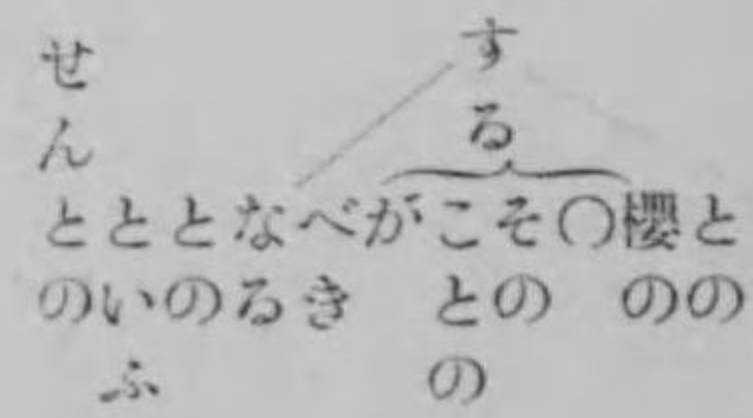 する
との
櫻の
〇
その
ことの
が
べき
なる
との
といふ
せんとの